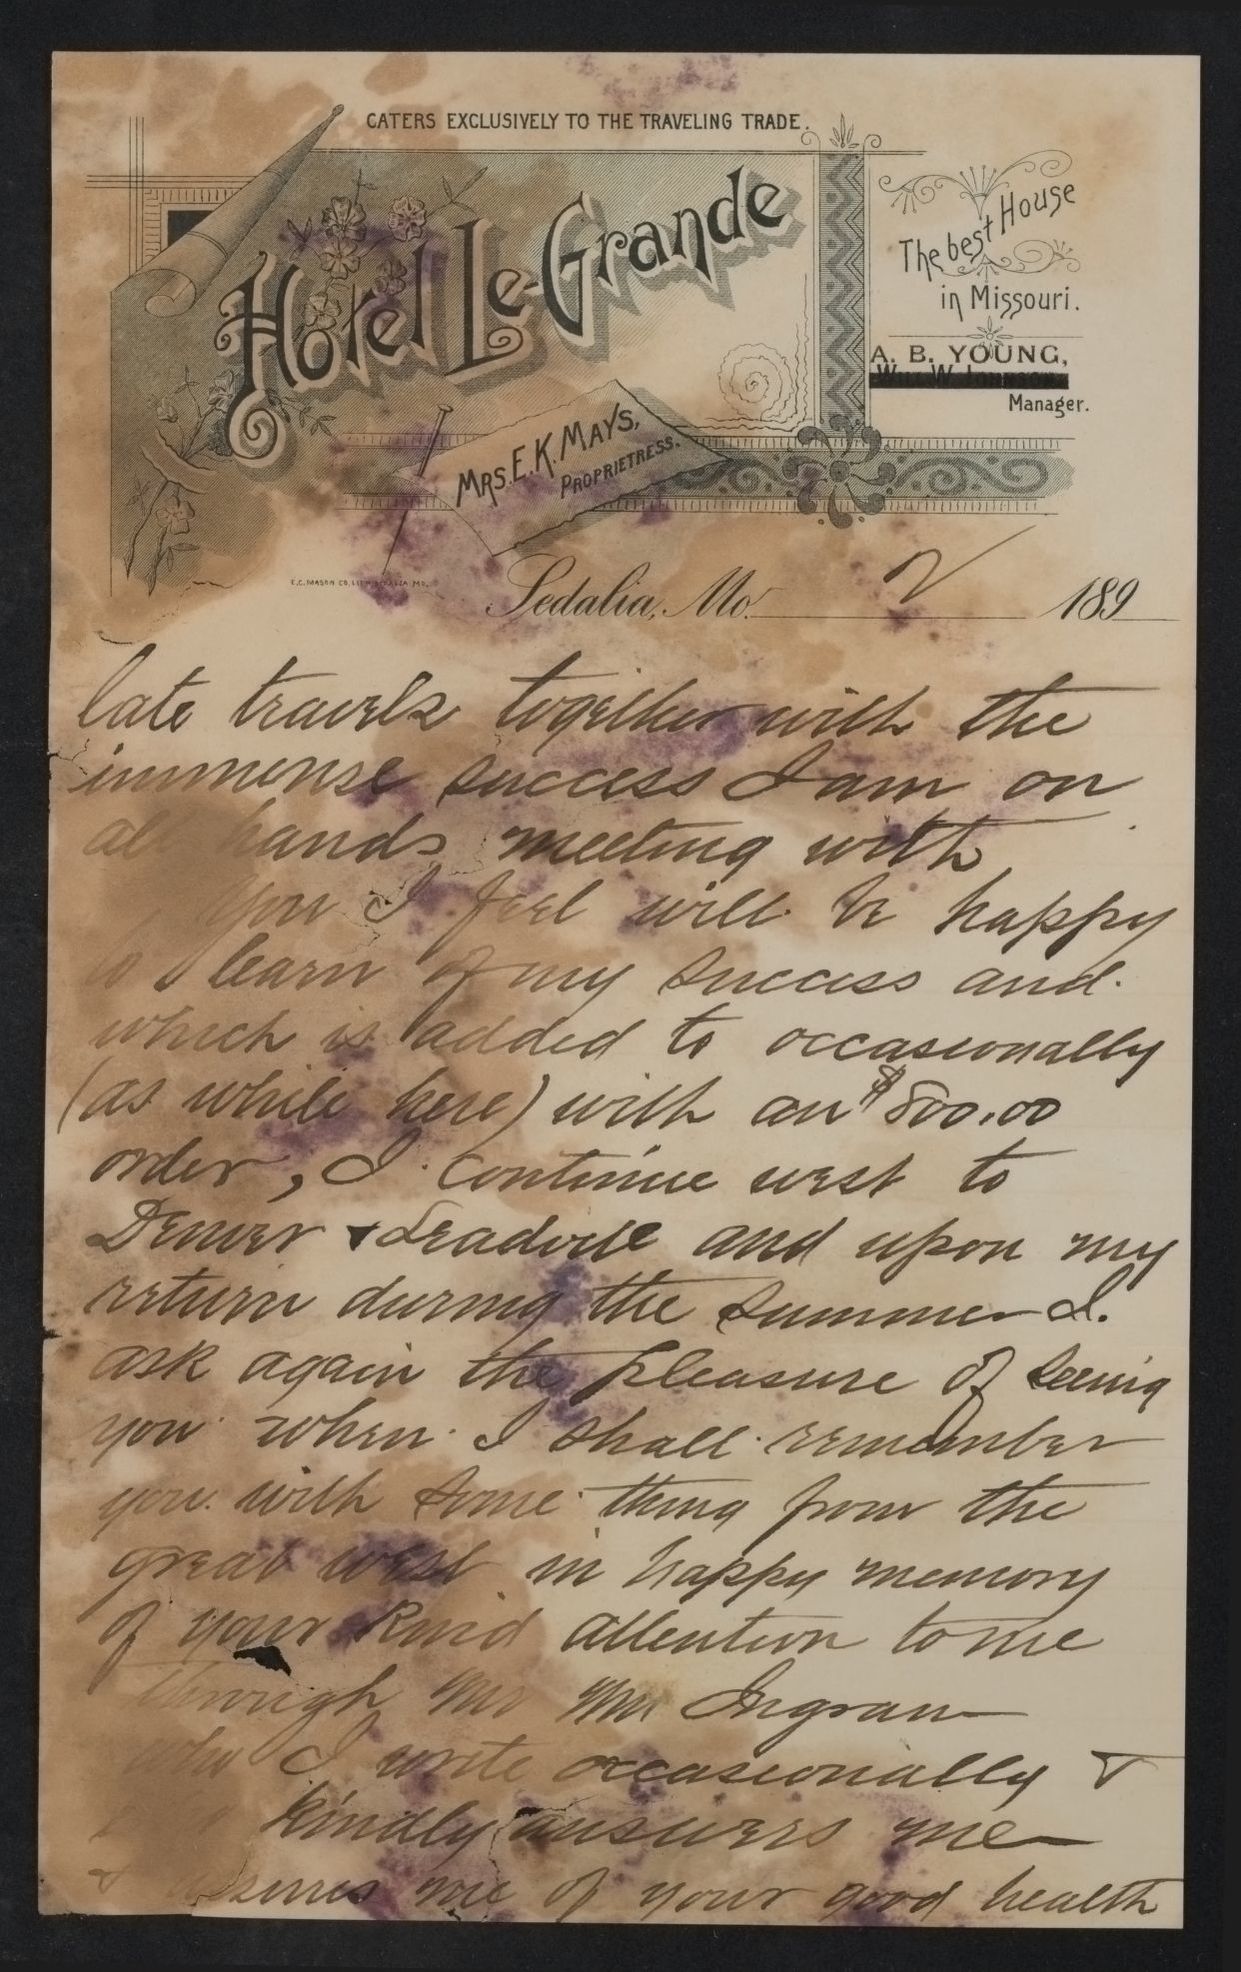 CATERS EXCLUSIVELY TO THE TRAVELING TRADE.
Hotel Le Grande
The best House
in Missouri.
A. B. YOUNG,
Will W. Johnson
Manager.
MRS. E. K. MAYS,
PROPRIETRESS.
E.C. MASON CO. LITH. SEDALIA MO.
Sedalia, Mo. 2 189
late travels together with the
immense success I am on
all hands meeting with
you I feel will be happy
to learn of my success and
which is added to occasionally
(as while here) with an $800.00
order, I continue west to
Denver & Leadville and upon my
return during the summer I.
ask again the pleasure of seeing
you when I shall remember
you with some thing from the
great west in happy memory
of your kind attention to me
through Mr Ingram
who I write occasionally &
kindly answers me
& assures me of your good health